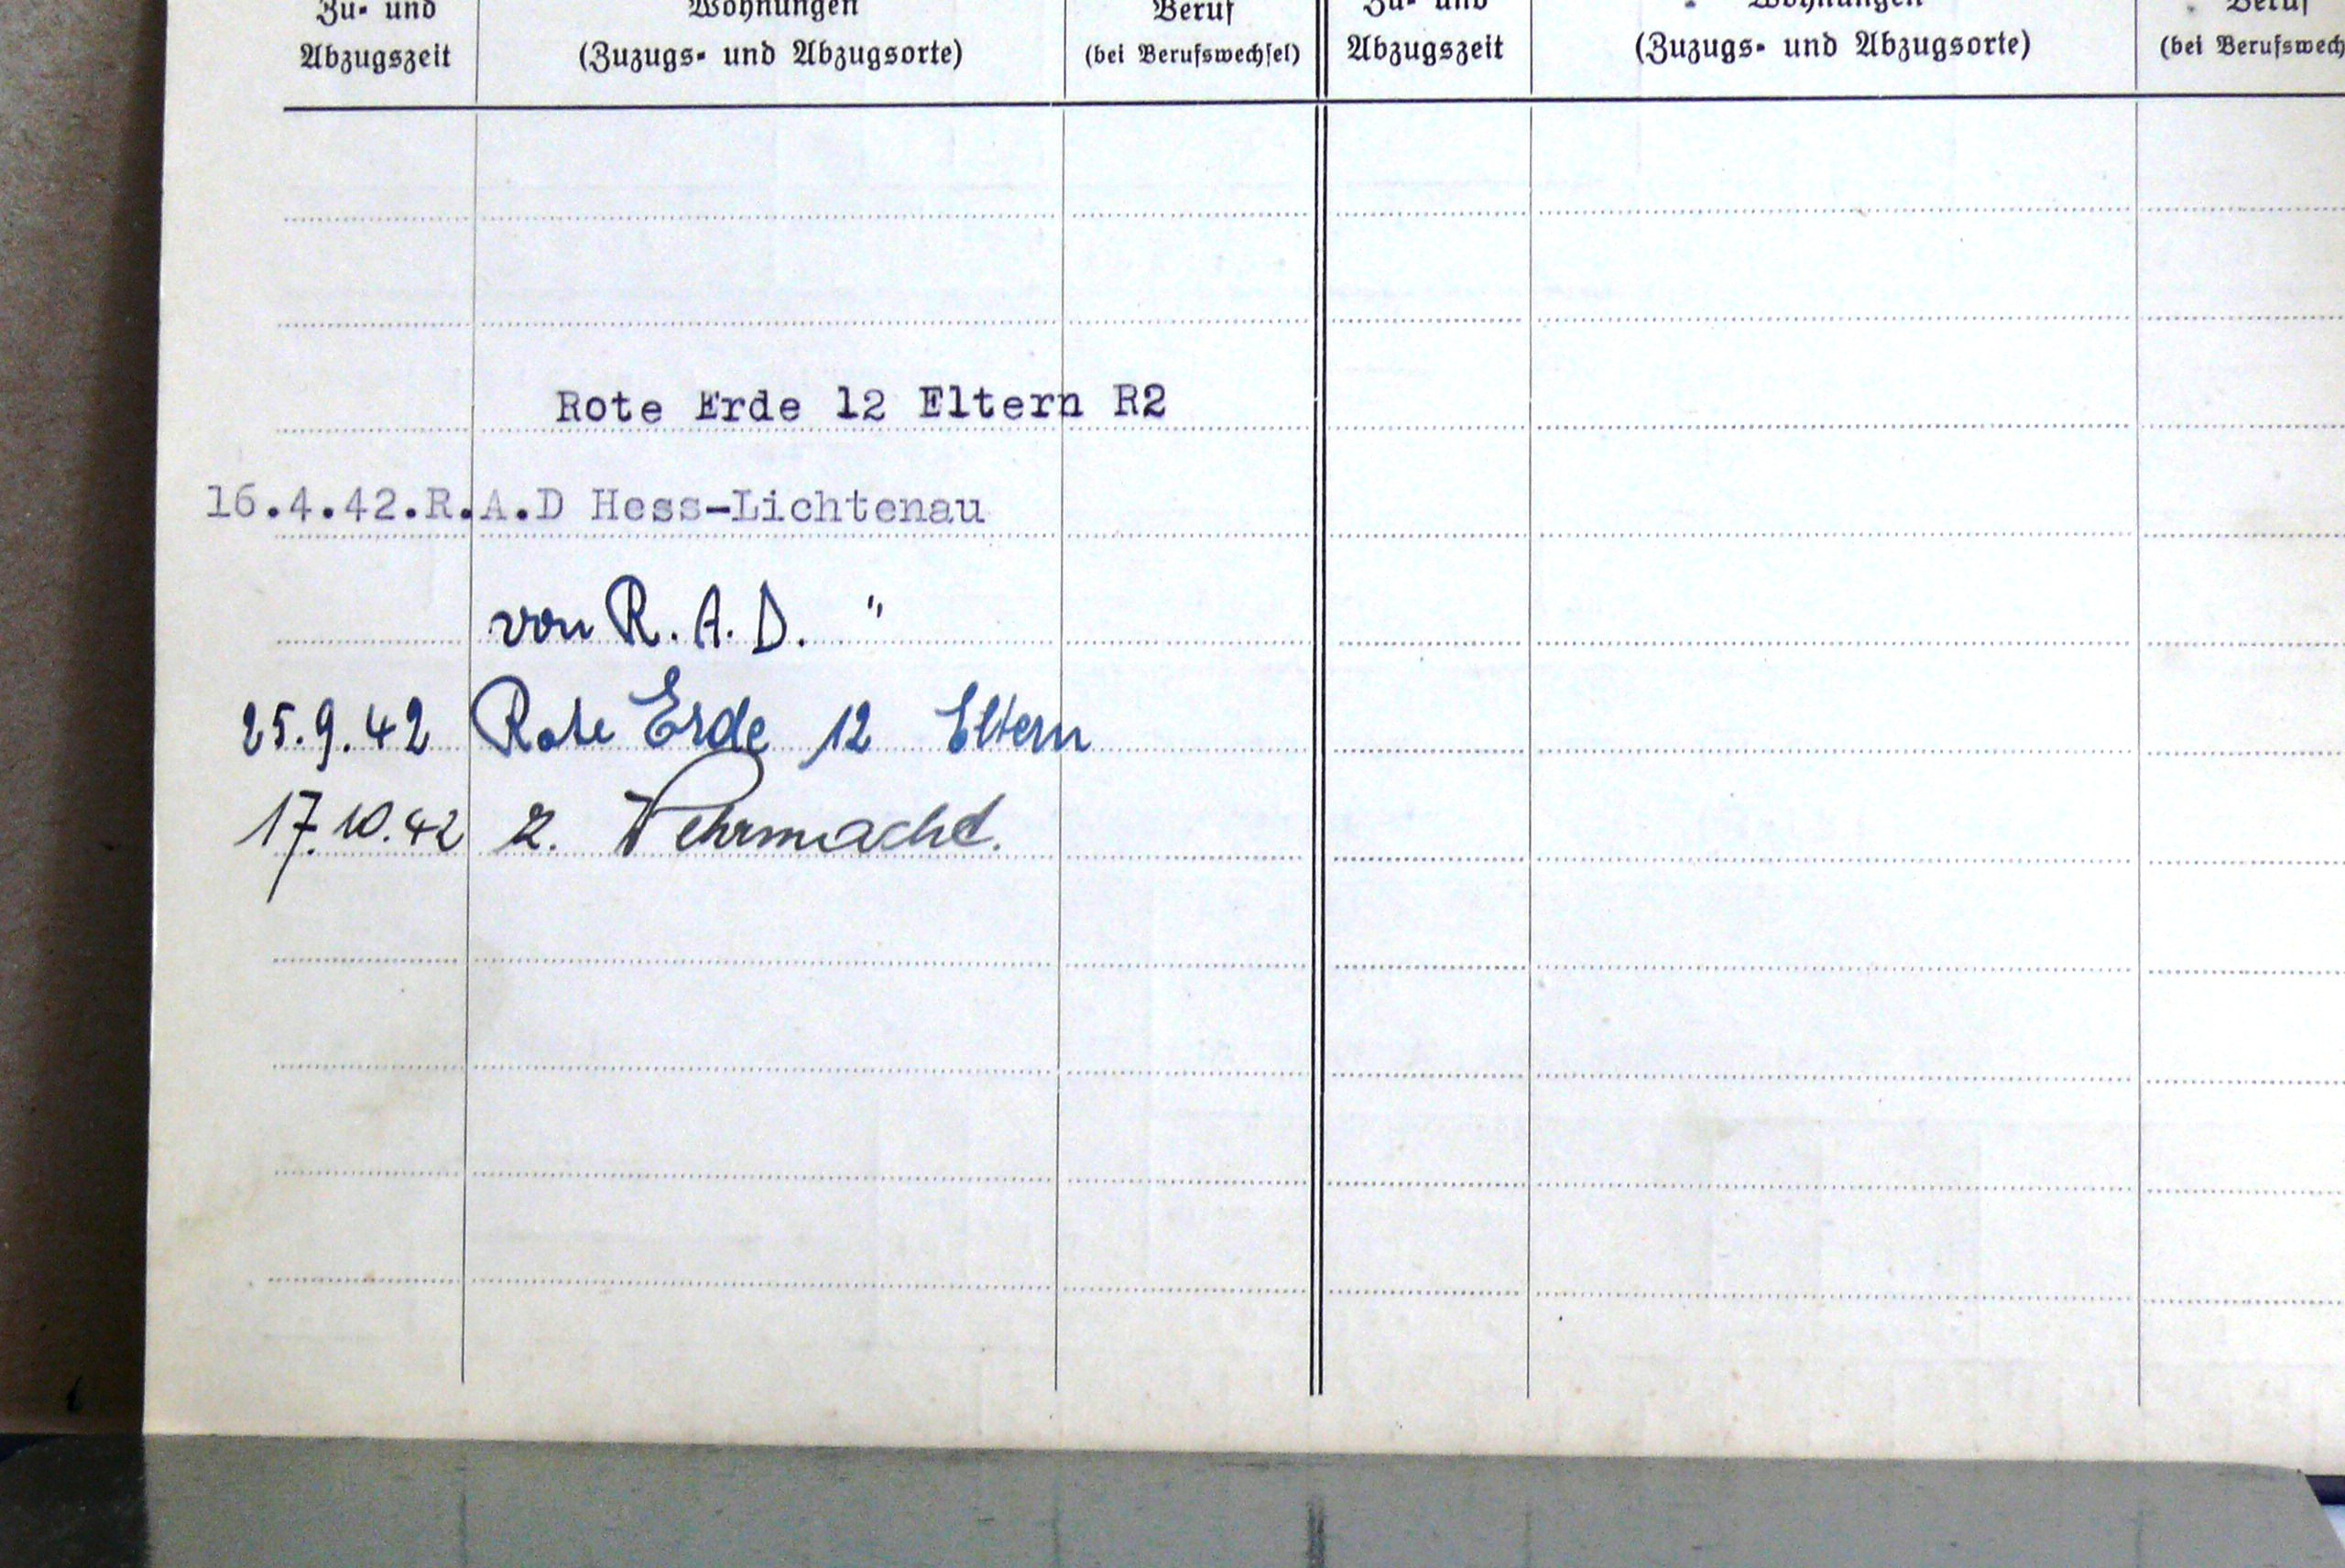 Zu- und Wohnungen Beruf Zu- und Wohnungen Beruf
Abzugszeit (Zuzugs- und Abzugsorte) (bei Berufswechsel) Abzugszeit (Zuzugs- und Abzugsorte) (bei Berufswech
Rote Erde 12 Eltern R2
16.4.42.R.A.D Hess-Lichtenau
von R. A. D. "
25.9.42 Rote Erde 12 Eltern
17.10.42 z. Wehrmacht.